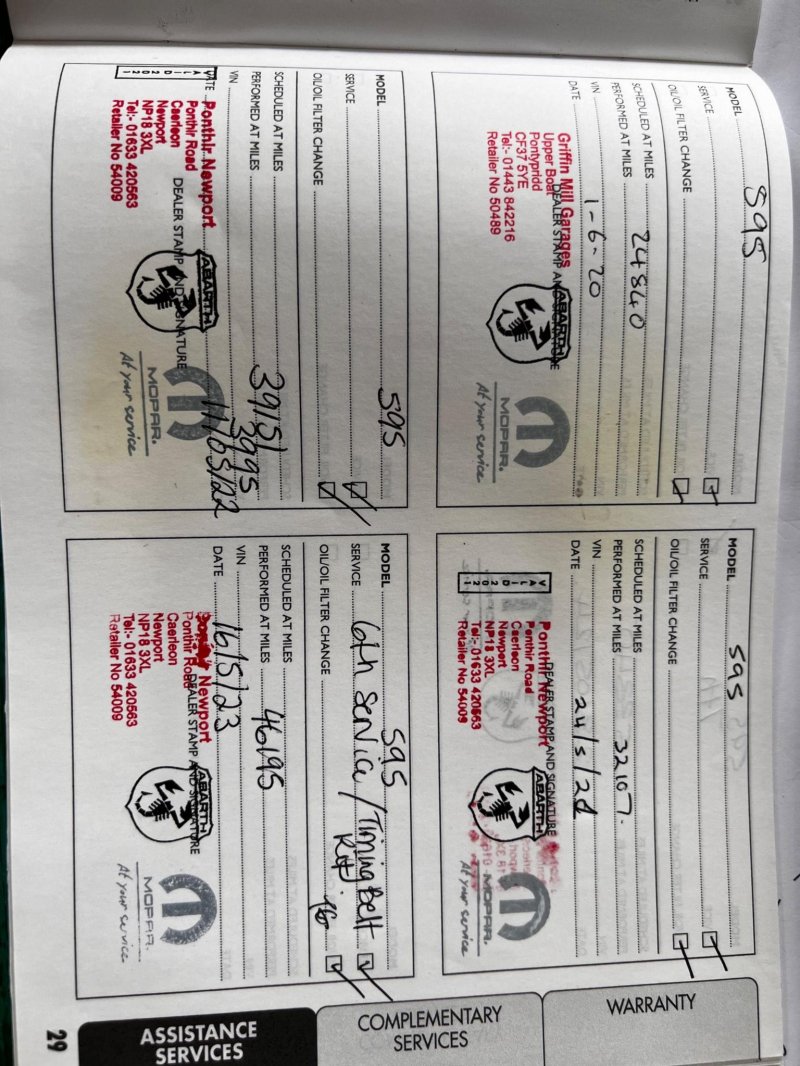 MODEL 595
SERVICE
OIL/OIL FILTER CHANGE
SCHEDULED AT MILES
PERFORMED AT MILES 24840
VIN
DATE 1-6-20
Griffin Mill Garages
DEALER STAMP AND SIGNATURE
Upper Boat
Pontypridd
CF37 5YE
Tel:- 01443 842216
Retailer No 50489
ABARTH
MOPAR.
At your service
MODEL 595
SERVICE
OIL/OIL FILTER CHANGE
SCHEDULED AT MILES
PERFORMED AT MILES 32107.
VIN
DATE
DEALER STAMP AND SIGNATURE
Ponthir Newport
Ponthir Road
Caerleon
Newport
NP18 3XL
Tel:- 01633 420563
Retailer No 54009
VALID
2021
ABARTH
MOPAR.
At your service
MODEL 595
SERVICE
OIL/OIL FILTER CHANGE
SCHEDULED AT MILES
PERFORMED AT MILES 39151
3995
VIN
DATE 11/05/22
VALID
2021
Ponthir Newport
Ponthir Road
DEALER STAMP AND SIGNATURE
Caerleon
Newport
NP18 3XL
Tel:- 01633 420563
Retailer No 54009
ABARTH
MOPAR.
At your service
MODEL 595
SERVICE 6th service / Timing Belt
OIL/OIL FILTER CHANGE
SCHEDULED AT MILES
PERFORMED AT MILES 46195
VIN
DATE 16/5/23
Ponthir Newport
Ponthir Road
DEALER STAMP AND SIGNATURE
Caerleon
Newport
NP18 3XL
Tel:- 01633 420563
Retailer No 54009
ABARTH
MOPAR.
At your service
WARRANTY
COMPLEMENTARY
SERVICES
ASSISTANCE
SERVICES
29